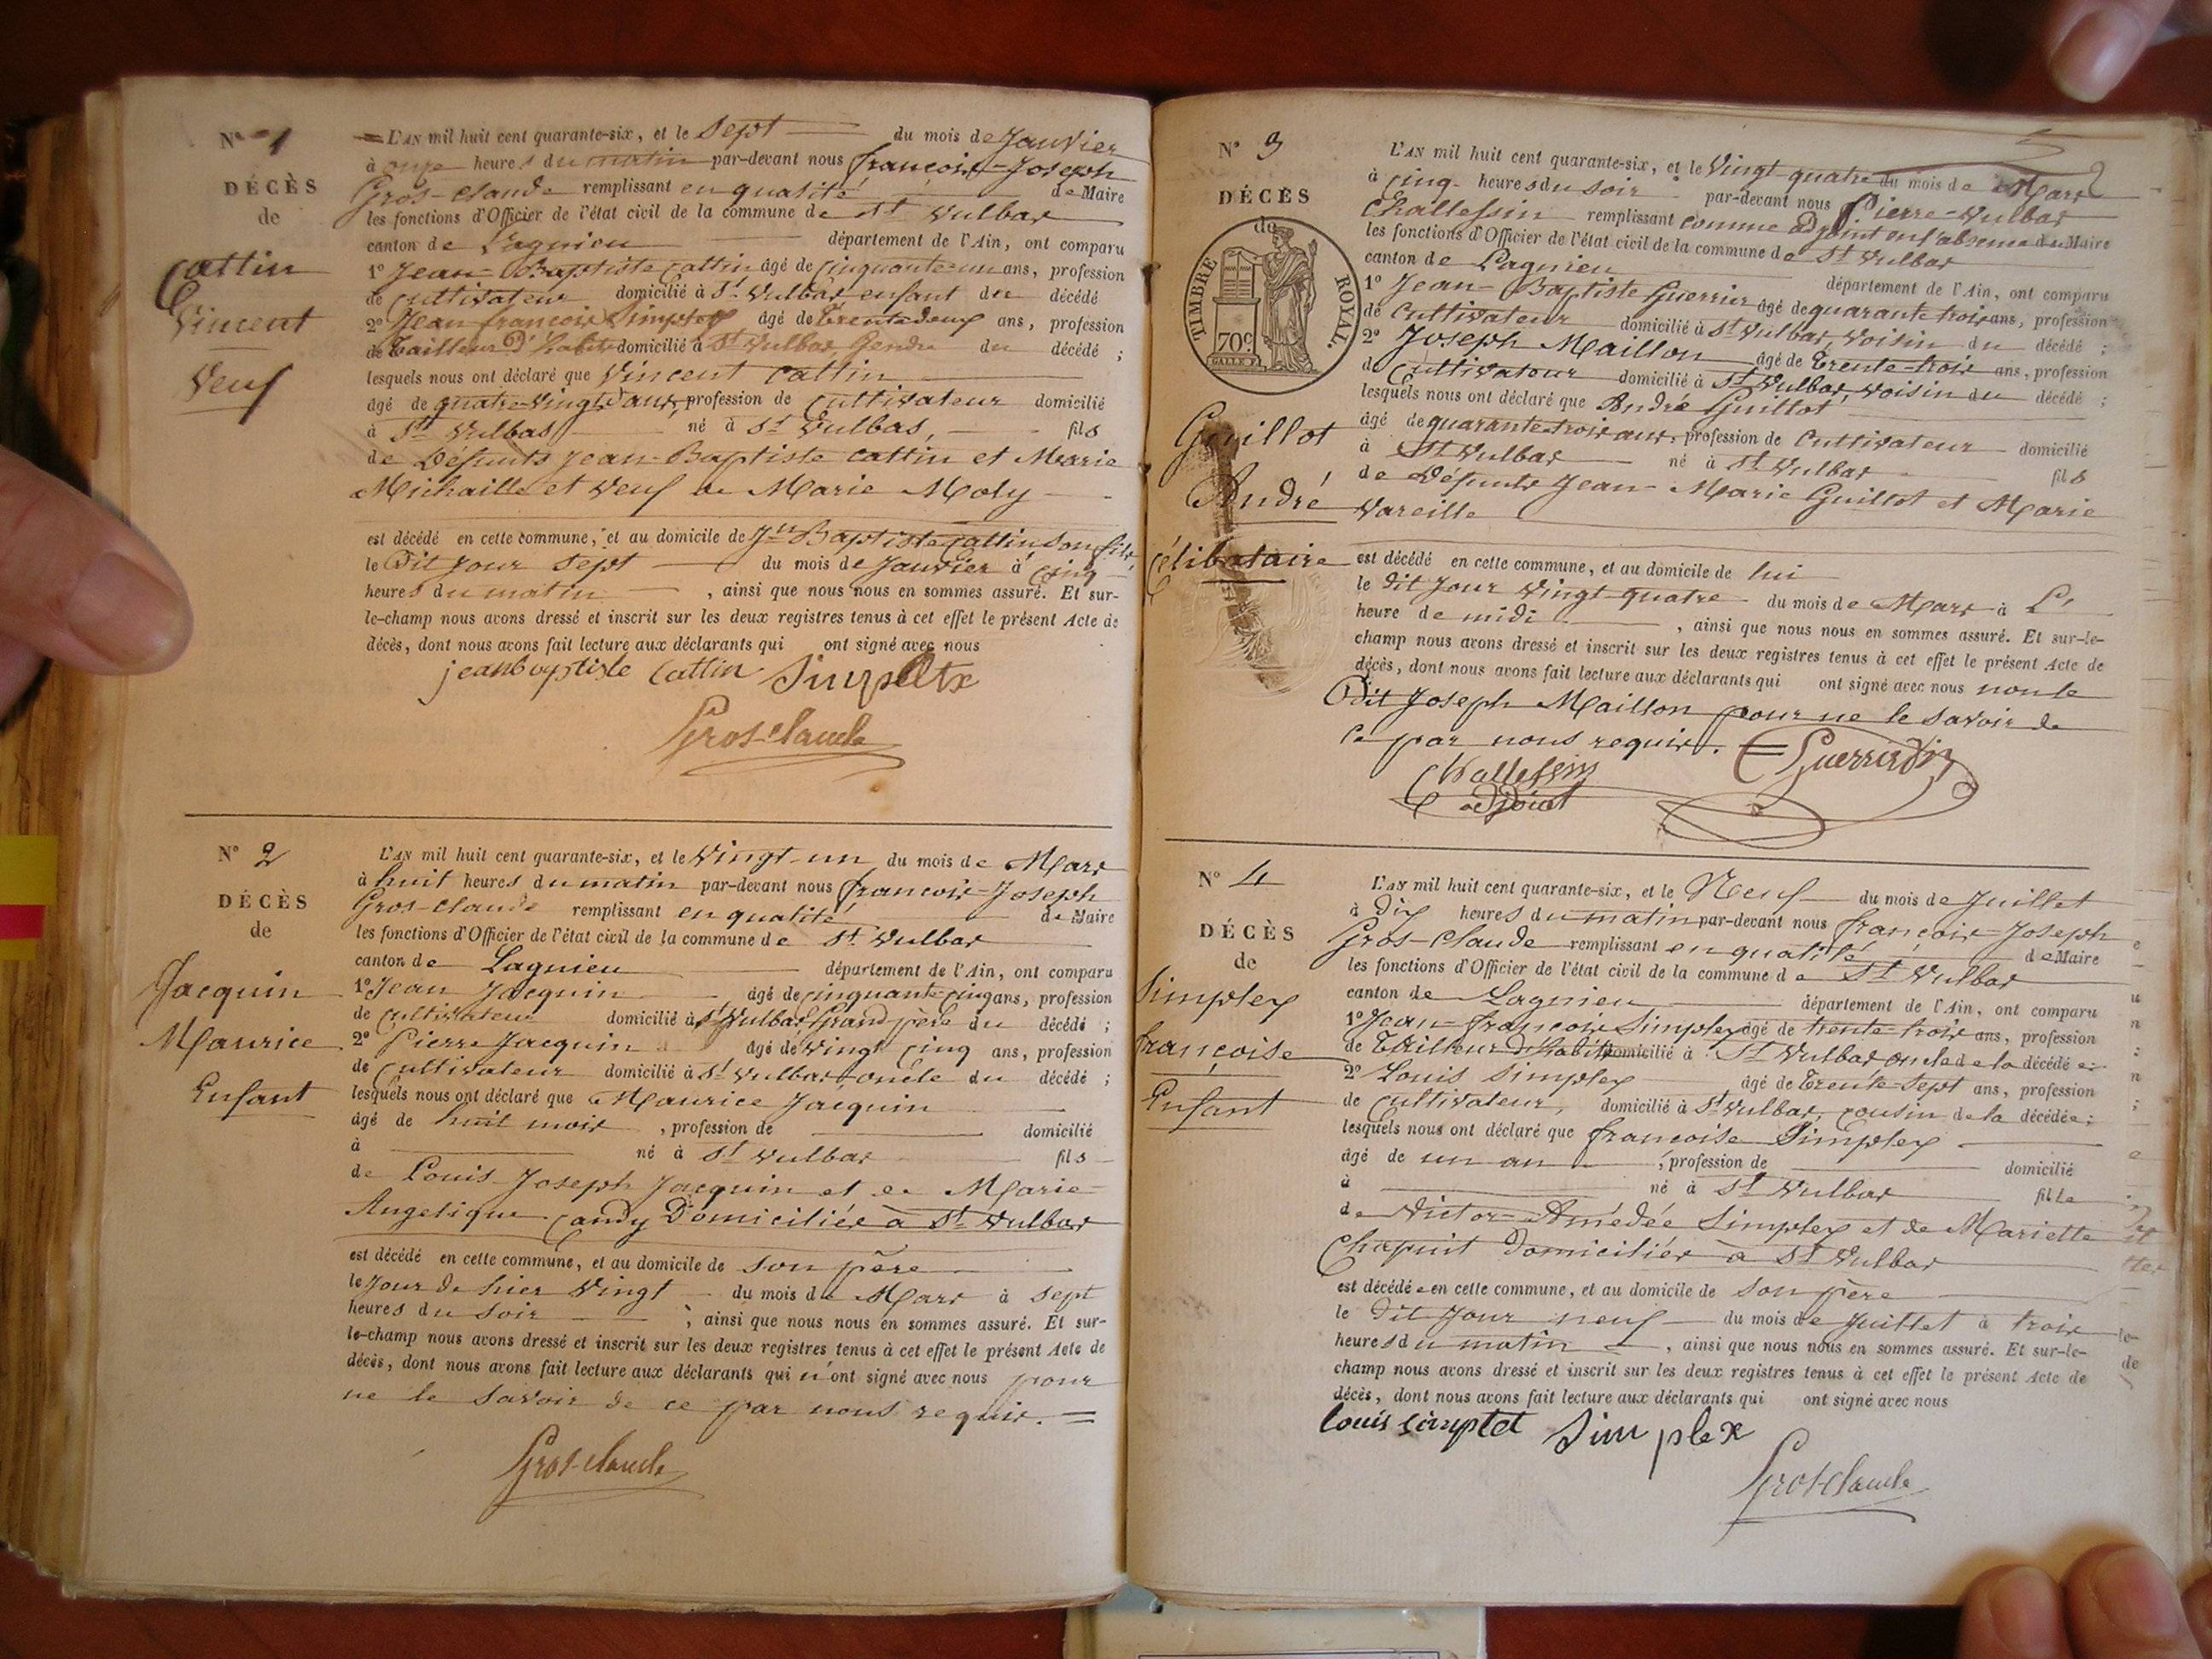 N° 1
DÉCÈS
de
Cattin
Vincent
Veuf
L'AN mil huit cent quarante-six, et le Sept du mois de Janvier
à onze heures du matin par-devant nous françois-Joseph
Gros-claude remplissant en qualité de Maire
les fonctions d'Officier de l'état civil de la commune de St Vulbas
canton de Lagnieu département de l'Ain, ont comparu
1° Jean-Baptiste Cattin âgé de cinquante-un ans, profession
de cultivateur domicilié à St Vulbas enfant du décédé
2° Jean françois Simplex âgé de trente deux ans, profession
de tailleur d'habits domicilié à St Vulbas, Gendre du décédé ;
lesquels nous ont déclaré que Vincent Cattin
âgé de quatre-vingts ans, profession de cultivateur domicilié
à St Vulbas né à St Vulbas, fils
de Défunts Jean-Baptiste Cattin et Marie
Michaille et Veuf de Marie Moly
est décédé en cette commune, et au domicile de Jn Baptiste Cattin son fils
le Dit Jour Sept du mois de Janvier à cinq
heures du matin, ainsi que nous nous en sommes assuré. Et sur-
le-champ nous avons dressé et inscrit sur les deux registres tenus à cet effet le présent Acte de
décès, dont nous avons fait lecture aux déclarants qui ont signé avec nous
jeanbaptiste Cattin Simplex
Gros-claude
N° 2
DÉCÈS
de
Jacquin
Maurice
Enfant
L'AN mil huit cent quarante-six, et le Vingt-un du mois de Mars
à huit heures du matin par-devant nous françois-Joseph
Gros-claude remplissant en qualité de Maire
les fonctions d'Officier de l'état civil de la commune de St Vulbas
canton de Lagnieu département de l'Ain, ont comparu
1° Jean Jacquin âgé de cinquante-cinq ans, profession
de cultivateur domicilié à St Vulbas Grand père du décédé ;
2° Pierre Jacquin âgé de vingt cinq ans, profession
de cultivateur domicilié à St Vulbas oncle du décédé ;
lesquels nous ont déclaré que Maurice Jacquin
âgé de huit mois, profession de domicilié
à né à St Vulbas fils
de Louis-Joseph Jacquin et de Marie
Angelique Candy Domiciliés à St Vulbas
est décédé en cette commune, et au domicile de son père
le Jour de hier Vingt du mois de Mars à sept
heures du Soir, ainsi que nous nous en sommes assuré. Et sur-
le-champ nous avons dressé et inscrit sur les deux registres tenus à cet effet le présent Acte de
décès, dont nous avons fait lecture aux déclarants qui n'ont signé avec nous pour
ne le savoir de ce par nous requis.
Gros-claude
N° 3
DÉCÈS
de
TIMBRE ROYAL.
70c
Guillot
André
célibataire
L'AN mil huit cent quarante-six, et le Vingt quatre du mois de Mars
à cinq heures du soir par-devant nous Pierre-Vulbas
Challessin remplissant comme adjoint en l'absence du Maire
les fonctions d'Officier de l'état civil de la commune de St Vulbas
canton de Lagnieu département de l'Ain, ont comparu
1° Jean-Baptiste Guerrier âgé de quarante trois ans, profession
de Cultivateur domicilié à St Vulbas, voisin du décédé ;
2° Joseph Maillon âgé de trente-trois ans, profession
de Cultivateur domicilié à St Vulbas, voisin du décédé ;
lesquels nous ont déclaré que André Guillot
âgé de quarante-trois ans, profession de Cultivateur domicilié
à St Vulbas né à St Vulbas fils
de Défunts Jean-Marie Guillot et Marie
Vareille
est décédé en cette commune, et au domicile de lui
le dit Jour Vingt quatre du mois de Mars à L'
heure de midi, ainsi que nous nous en sommes assuré. Et sur-le-
champ nous avons dressé et inscrit sur les deux registres tenus à cet effet le présent Acte de
décès, dont nous avons fait lecture aux déclarants qui ont signé avec nous non le
Dit Joseph Maillon pour ne le savoir de
ce par nous requis.
Challessin
adjoint
N° 4
DÉCÈS
de
Simplex
françoise
Enfant
L'AN mil huit cent quarante-six, et le Neuf du mois de Juillet
à Dix heures du matin par-devant nous françois-Joseph
Gros-Claude remplissant en qualité de Maire
les fonctions d'Officier de l'état civil de la commune de St Vulbas
canton de Lagnieu département de l'Ain, ont comparu
1° Jean-françois Simplex âgé de trente-trois ans, profession
de Tailleur d'habits domicilié à St Vulbas oncle de la décédée ;
2° Louis Simplex âgé de trente-sept ans, profession
de Cultivateur, domicilié à St Vulbas, cousin de la décédée ;
lesquels nous ont déclaré que françoise Simplex
âgé de un an, profession de domicilié
à né à St Vulbas fille
de Victor-Amédée Simplex et de Mariette
Chapuit Domiciliés à St Vulbas
est décédée en cette commune, et au domicile de son père
le Dit Jour neuf du mois de Juillet à trois
heures du matin, ainsi que nous nous en sommes assuré. Et sur-le-
champ nous avons dressé et inscrit sur les deux registres tenus à cet effet le présent Acte de
décès, dont nous avons fait lecture aux déclarants qui ont signé avec nous
Louis Simplet Simplex
Gros-Claude